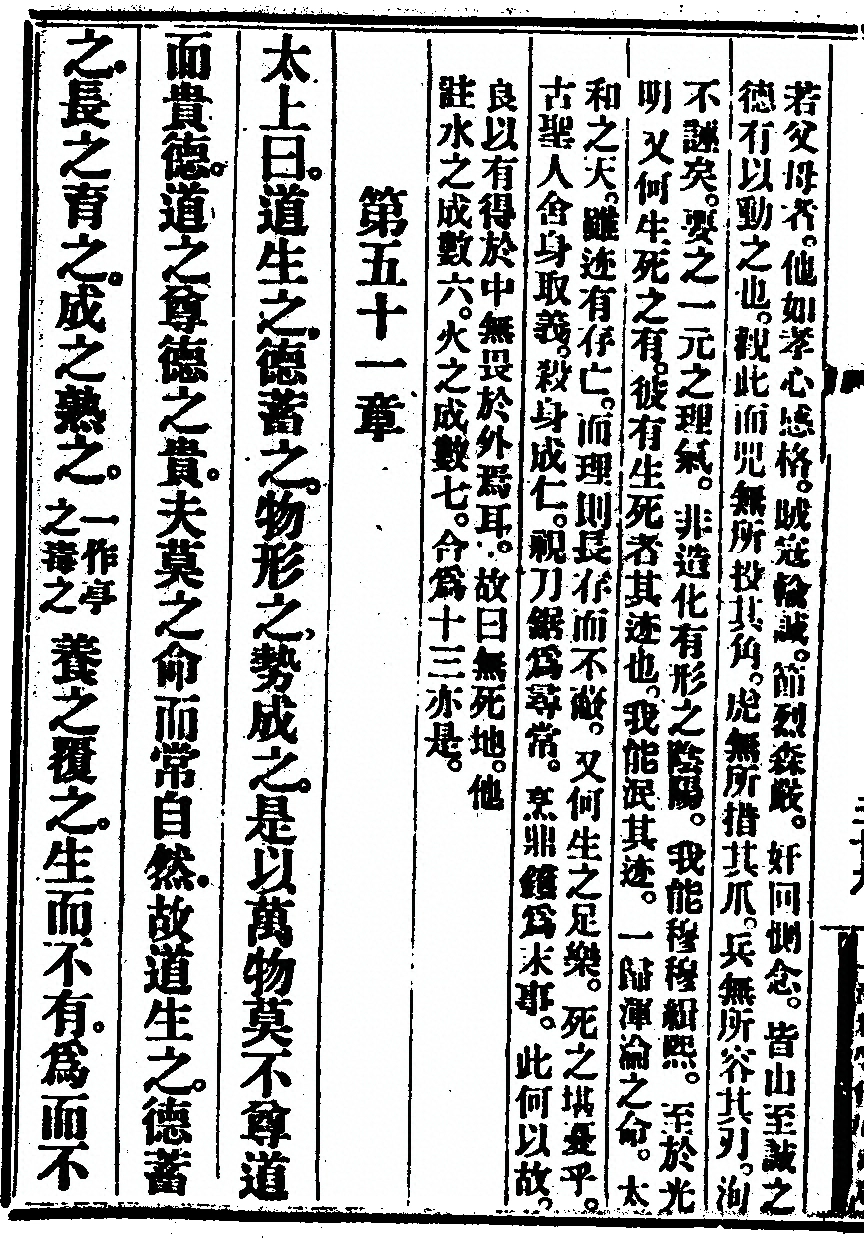 若父母者。他如孝心感格。賊寇輸誠。節烈森嚴。奸回惻念。皆由至誠之
德有以動之也。觀此而兕無所投其角。虎無所措其爪。兵無所容其刃。洵
不誣矣。要之一元之理氣。非造化有形之陰陽。我能穆穆緝熙。至於光
明又何生死之有。彼有生死者其迹也。我能泯其迹。一歸渾淪之命。太
和之天。雖迹有存亡。而理則長存而不敝。又何生之足樂。死之堪憂乎。
古聖人舍身取義。殺身成仁。視刀鋸為尋常。烹鼎鑊為末事。此何以故。
良以有得於中無畏於外焉耳。故曰無死地。他
註水之成數六。火之成數七。合為十三亦是。
第五十一章
太上曰。道生之。德蓄之。物形之。勢成之。是以萬物莫不尊道
而貴德。道之尊德之貴。夫莫之命而常自然。故道生之。德蓄
之。長之育之。成之熟之。一作亭之毒之養之覆之。生而不有。為而不